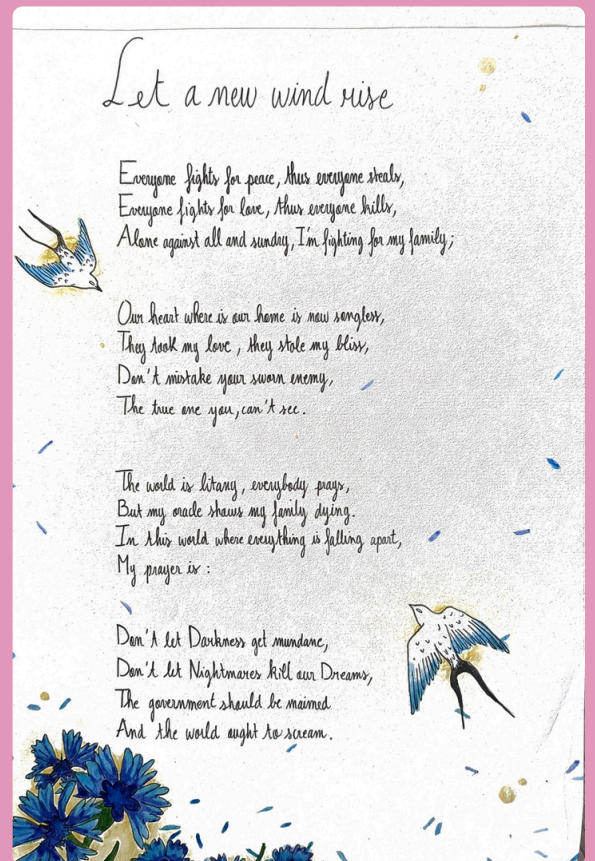 Let a new wind rise
Everyone fights for peace, thus everyone steals,
Everyone fights for love, thus everyone kills,
Alone against all and sundry, I'm fighting for my family;
Our heart where is our home is now songless,
They took my love, they stole my bliss,
Don't mistake your sworn enemy,
The true one you, can't see.
The world is litany, everybody prays,
But my oracle shows my family dying.
In this world where everything is falling apart,
My prayer is :
Don't let Darkness get mundane,
Don't let Nightmares kill our Dreams,
The government should be maimed
And the world ought to scream.